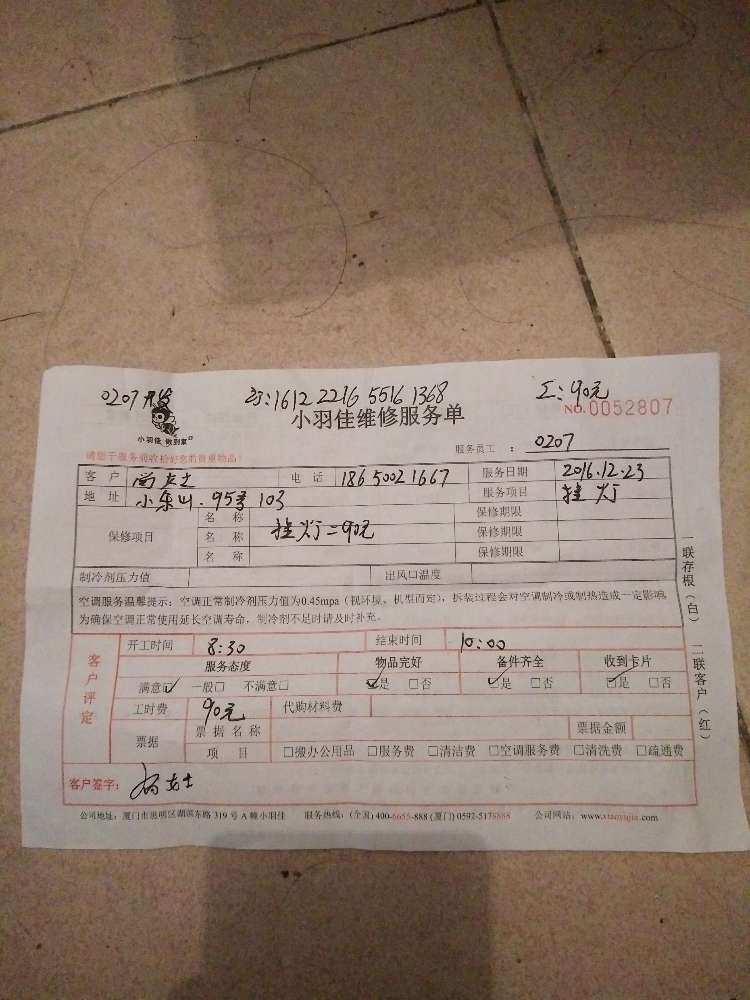 0207
1612 2216 5516 1368
90元
小羽佳维修服务单
NO.0052807
小羽佳 做到家
服务员工 : 0207
请您于服务前收拾好您的贵重物品!
客 户 女士 电 话 18650021667 服务日期 2016.12.23
地 址 小东山.95号103 服务项目 挂灯
保修项目
名 称 保修期限
名 称 挂灯=90元 保修期限
名 称 保修期限
制冷剂压力值 出风口温度
空调服务温馨提示：空调正常制冷剂压力值为0.45mpa（视环境，机型而定），拆装过程会对空调制冷或制热造成一定影响，
为确保空调正常使用延长空调寿命，制冷剂不足时请及时补充。
客户评定
开工时间 8:30 结束时间 10:00
服务态度 物品完好 备件齐全 收到卡片
满意☑ 一般□ 不满意□ ☑是 □否 ☑是 □否 ☑是 □否
工时费 90元 代购材料费
票据 票据名称 票据金额
项 目 □搬办公用品 □服务费 □清洁费 □空调服务费 □清洗费 □疏通费
客户签字： 女士
一联存根（白） 二联客户（红）
公司地址：厦门市思明区湖滨东路 319 号 A 幢小羽佳 服务热线：(全国) 400-6655-888 (厦门) 0592-5178888 公司网站：www.xiaoyujia.com